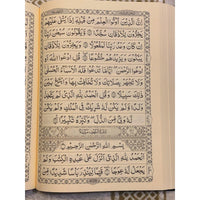 إِنَّ الَّذِينَ أُوتُوا الْعِلْمَ مِنْ قَبْلِهِ إِذَا يُتْلَى عَلَيْهِمْ
يَخِرُّونَ لِلْأَذْقَانِ سُجَّدًا وَيَقُولُونَ سُبْحَانَ رَبِّنَا
إِنْ كَانَ وَعْدُ رَبِّنَا لَمَفْعُولًا وَيَخِرُّونَ لِلْأَذْقَانِ
يَبْكُونَ وَيَزِيدُهُمْ خُشُوعًا قُلِ ادْعُوا اللَّهَ أَوِ ادْعُوا
الرَّحْمَٰنَ أَيًّا مَا تَدْعُوا فَلَهُ الْأَسْمَاءُ الْحُسْنَى
وَلَا تَجْهَرْ بِصَلَاتِكَ وَلَا تُخَافِتْ بِهَا وَابْتَغِ بَيْنَ ذَٰلِكَ
سَبِيلًا وَقُلِ الْحَمْدُ لِلَّهِ الَّذِي لَمْ يَتَّخِذْ
وَلَدًا وَلَمْ يَكُنْ لَهُ شَرِيكٌ فِي الْمُلْكِ وَلَمْ يَكُنْ
لَهُ وَلِيٌّ مِنَ الذُّلِّ وَكَبِّرْهُ تَكْبِيرًا
بِسْمِ اللَّهِ الرَّحْمَٰنِ الرَّحِيمِ
الْحَمْدُ لِلَّهِ الَّذِي أَنْزَلَ عَلَى عَبْدِهِ الْكِتَابَ وَلَمْ
يَجْعَلْ لَهُ عِوَجًا قَيِّمًا لِيُنْذِرَ بَأْسًا شَدِيدًا